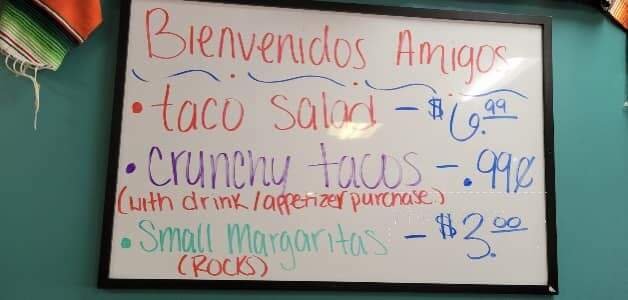 Bienvenidos Amigos
• taco salad - $6.99
• crunchy tacos - .99¢
(with drink / appetizer purchase)
• Small Margaritas - $3.00
(ROCKS)